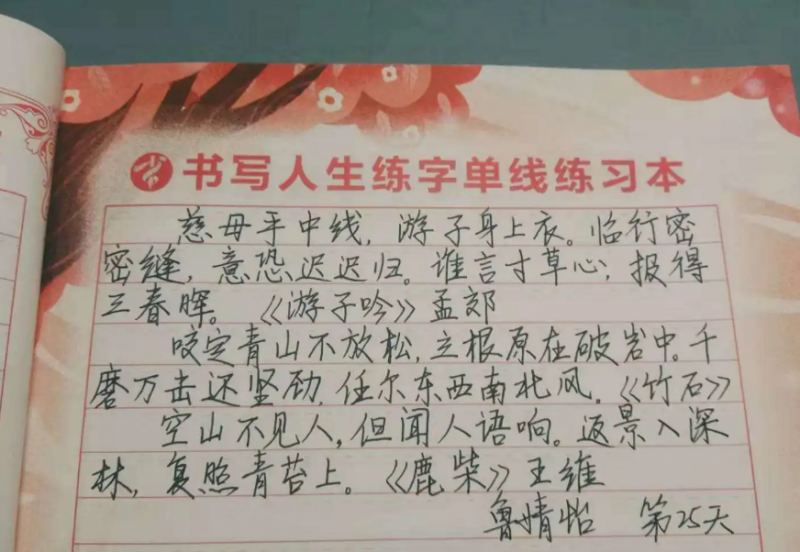 书写人生练字单线练习本
慈母手中线，游子身上衣。临行密
密缝，意恐迟迟归。谁言寸草心，报得
三春晖。《游子吟》孟郊
咬定青山不放松，立根原在破岩中。千
磨万击还坚劲，任尔东西南北风。《竹石》
空山不见人，但闻人语响。返景入深
林，复照青苔上。《鹿柴》王维
鲁婧怡 第25天